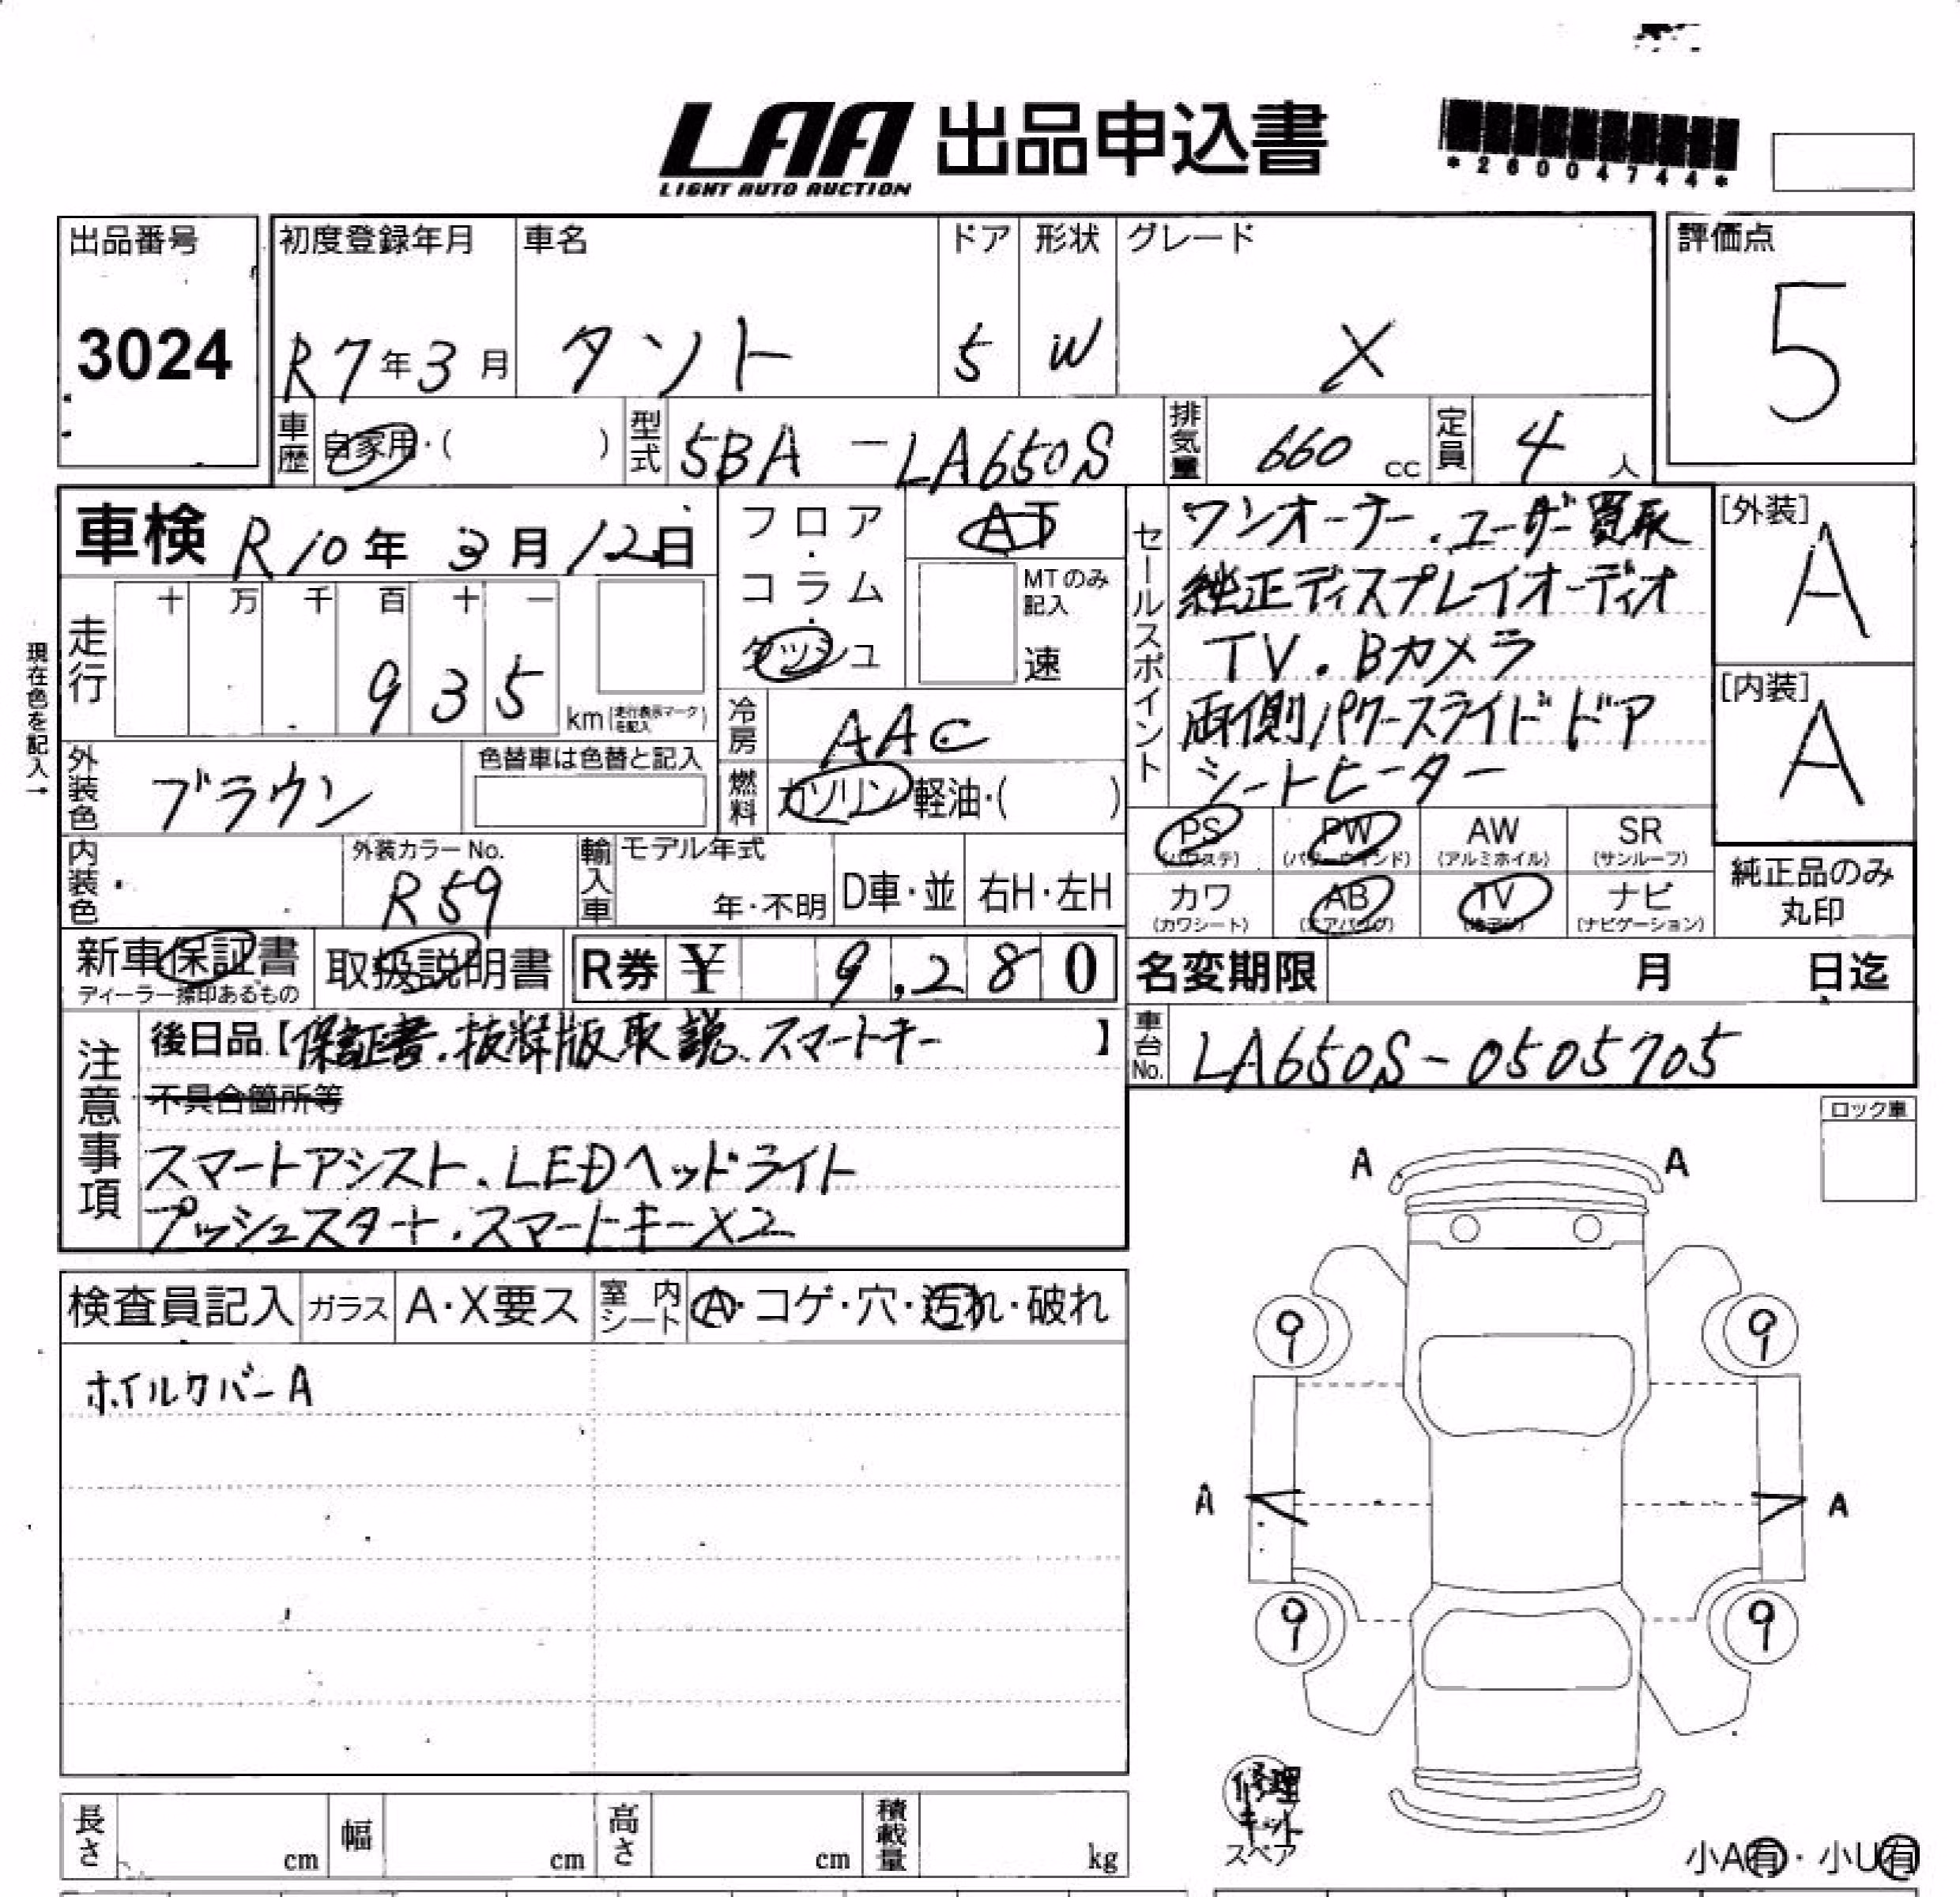 LAA 出品申込書
LIGHT AUTO AUCTION
*26004744*
出品番号
3024
初度登録年月
R7年3月
車名
タント
ドア
5
形状
W
グレード
X
評価点
5
車歴 自家用・( )
型式 5BA-LA650S
排気量 660 cc
定員 4 人
車検 R10年3月12日
フロア・コラム・ダッシュ
AT
MTのみ記入
速
セールスポイント
ワンオーナー.ユーザー買取
純正ディスプレイオーディオ
TV.Bカメラ
両側パワースライドドア
シートヒーター
[外装]
A
[内装]
A
現在色を記入→
走行
十 万 千 百 十 一
935 km(走行表示マークを記入)
冷房 AAC
燃料 ガソリン・軽油・( )
外装色 ブラウン
色替車は色替と記入
内装色
外装カラーNo.
R59
輸入車
モデル年式
年・不明
D車・並
右H・左H
PS (パワステ)
PW (パワーウィンド)
AW (アルミホイル)
SR (サンルーフ)
カワ (カワシート)
AB (エアバッグ)
TV
ナビ (ナビゲーション)
純正品のみ丸印
新車保証書
ディーラー捺印あるもの
取扱説明書
R券 ¥ 9,280
名変期限 月 日迄
注意事項
後日品【保証書.抜粋版取説、スマートキー】
不具合箇所等
スマートアシスト、LEDヘッドライト
プッシュスタート.スマートキーX2
車台No. LA650S-0505705
ロック車
検査員記入
ガラス A・X要ス
室内シート A・コゲ・穴・汚れ・破れ
ホイルカバーA
A A
9 9
A A
9 9
修理キット
スペア
小A有・小U有
長さ cm
幅 cm
高さ cm
積載量 kg